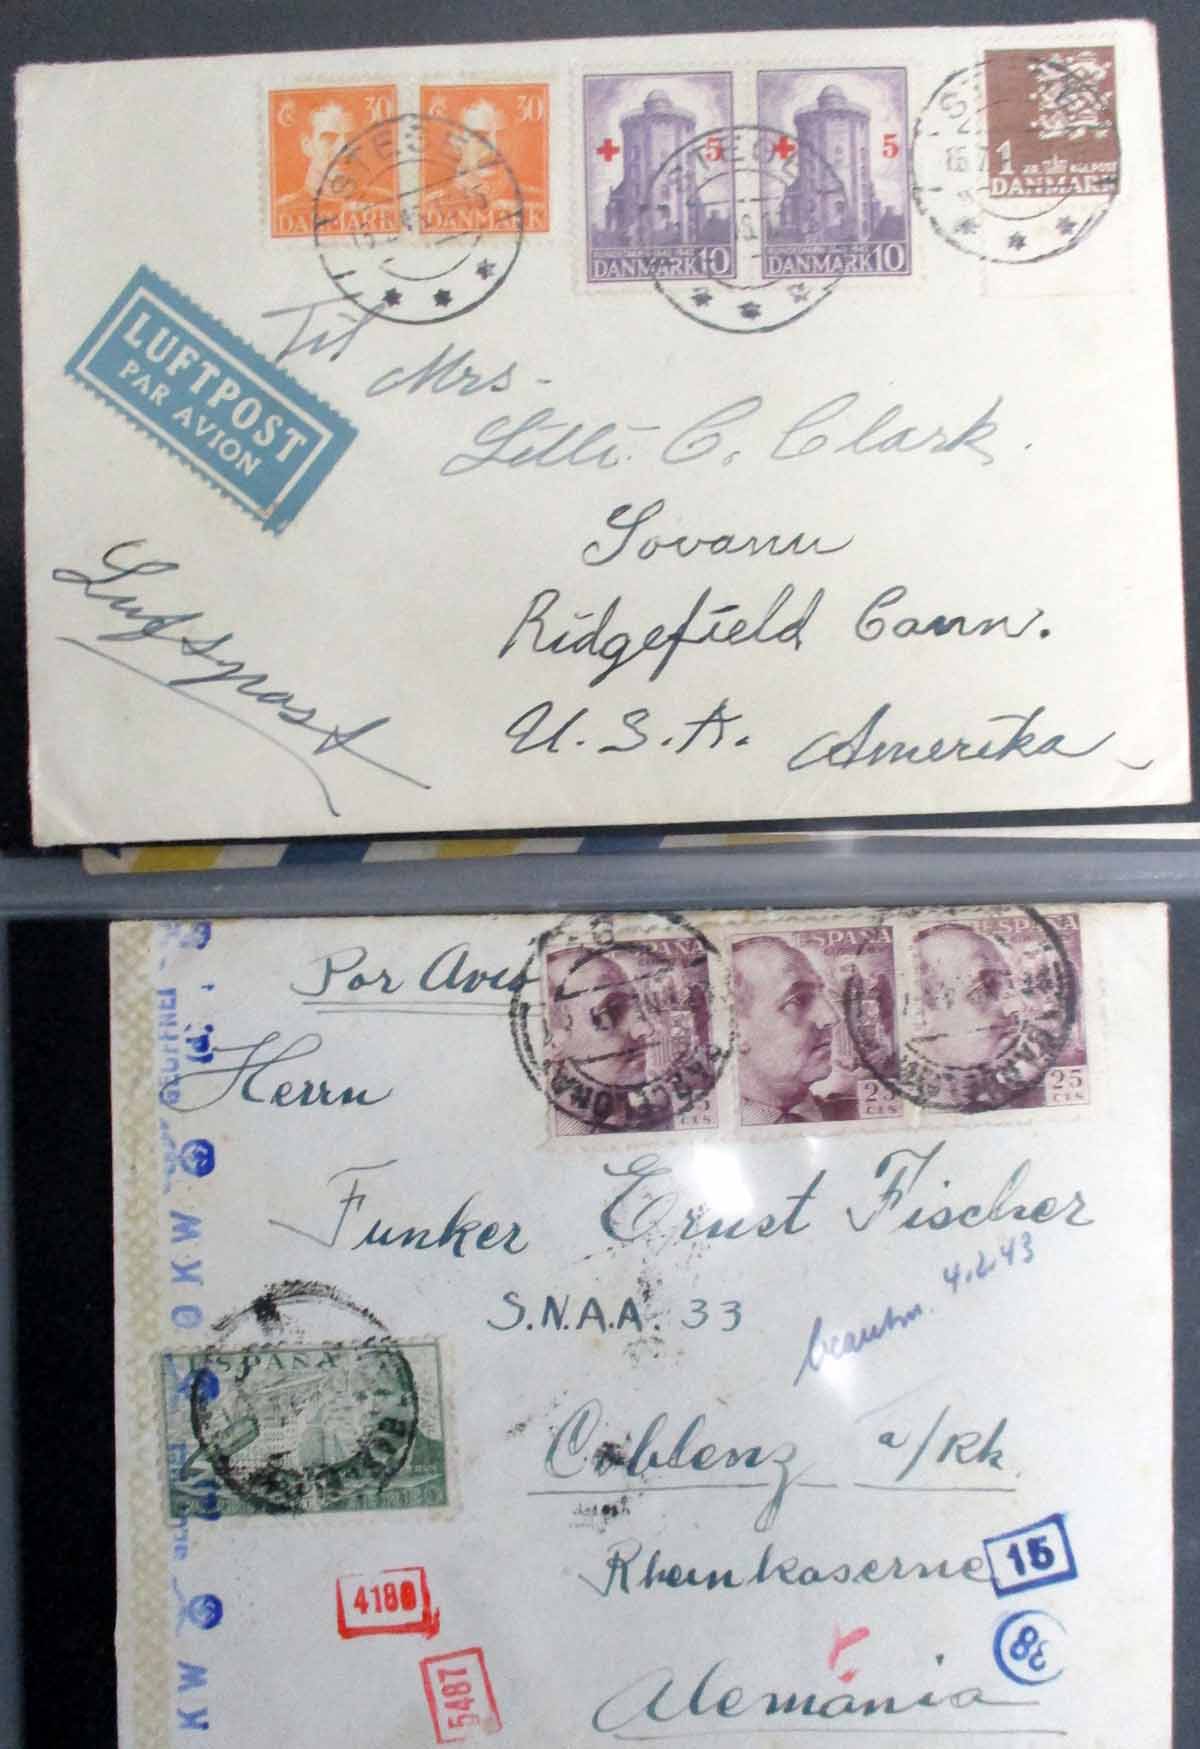 30 30
DANMARK DANMARK
5 5
DANMARK 10 DANMARK 10
1
DANMARK
STEGE
LUFTPOST
PAR AVION
Til
Mrs.
Lilli C. Clark.
Ridgefield Conn.
U.S.A. Amerika
Luftpost
Por Avion
ESPAÑA ESPAÑA ESPAÑA
25 CTS. 25 CTS.
BARCELONA
Herrn
Funker Ernst Fischer
S.N.A.A. 33
4.2.43
ESPAÑA
Coblenz a/Rh.
Rheinkaserne
15
38
Alemánia
4180
5487
OKW
KW